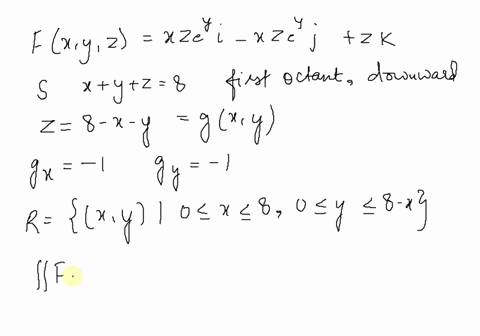 F(x,y,z) = xze^y i - xze^y j + zK
S x+y+z=8 first octant, downward
z = 8-x-y = g(x,y)
g_x = -1 g_y = -1
R = {(x,y) | 0 ≤ x ≤ 8, 0 ≤ y ≤ 8-x}
∬F·